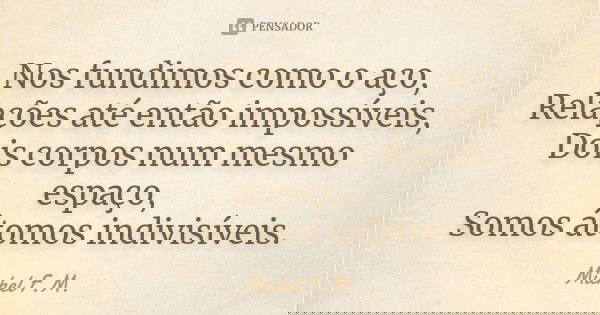 PENSADOR
Nos fundimos como o aço,
Relações até então impossíveis,
Dois corpos num mesmo
espaço,
Somos átomos indivisíveis.
Maikel F. M.